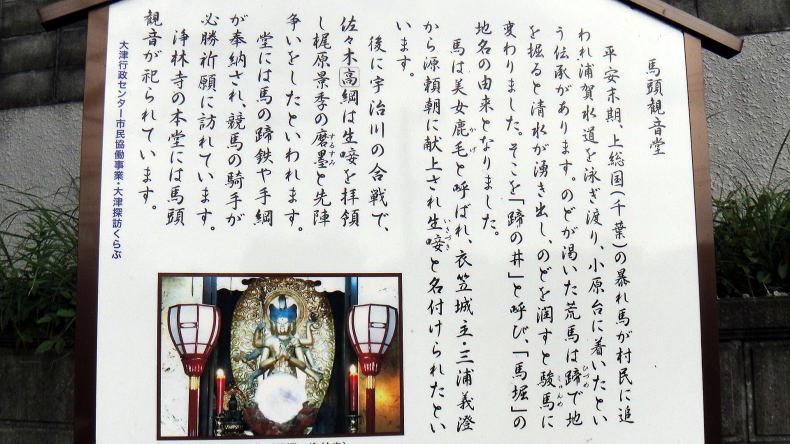 馬頭観音堂
平安末期、上総国(千葉)の暴れ馬が村民に追
われ浦賀水道を泳ぎ渡り、小原台に着いたとい
う伝承があります。のどが渇いた荒馬は蹄で地
ひづめ
を掘ると清水が湧き出し、のどを潤すと駿馬に
しゅんめ
変わりました。そこを「蹄の井」と呼び、「馬堀」の
地名の由来となりました。
馬は美女鹿毛と呼ばれ、衣笠城主・三浦義澄
かげ
から源頼朝に献上され生唼と名付けられたとい
いけずき
います。
後に宇治川の合戦で、
佐々木高綱は生唼を拝領
し梶原景季の磨墨と先陣
するすみ
争いをしたといわれます。
堂には馬の蹄鉄や手綱
が奉納され、競馬の騎手が
必勝祈願に訪れています。
浄林寺の本堂には馬頭
観音が祀られています。
大津行政センター市民協働事業・大津探訪くらぶ